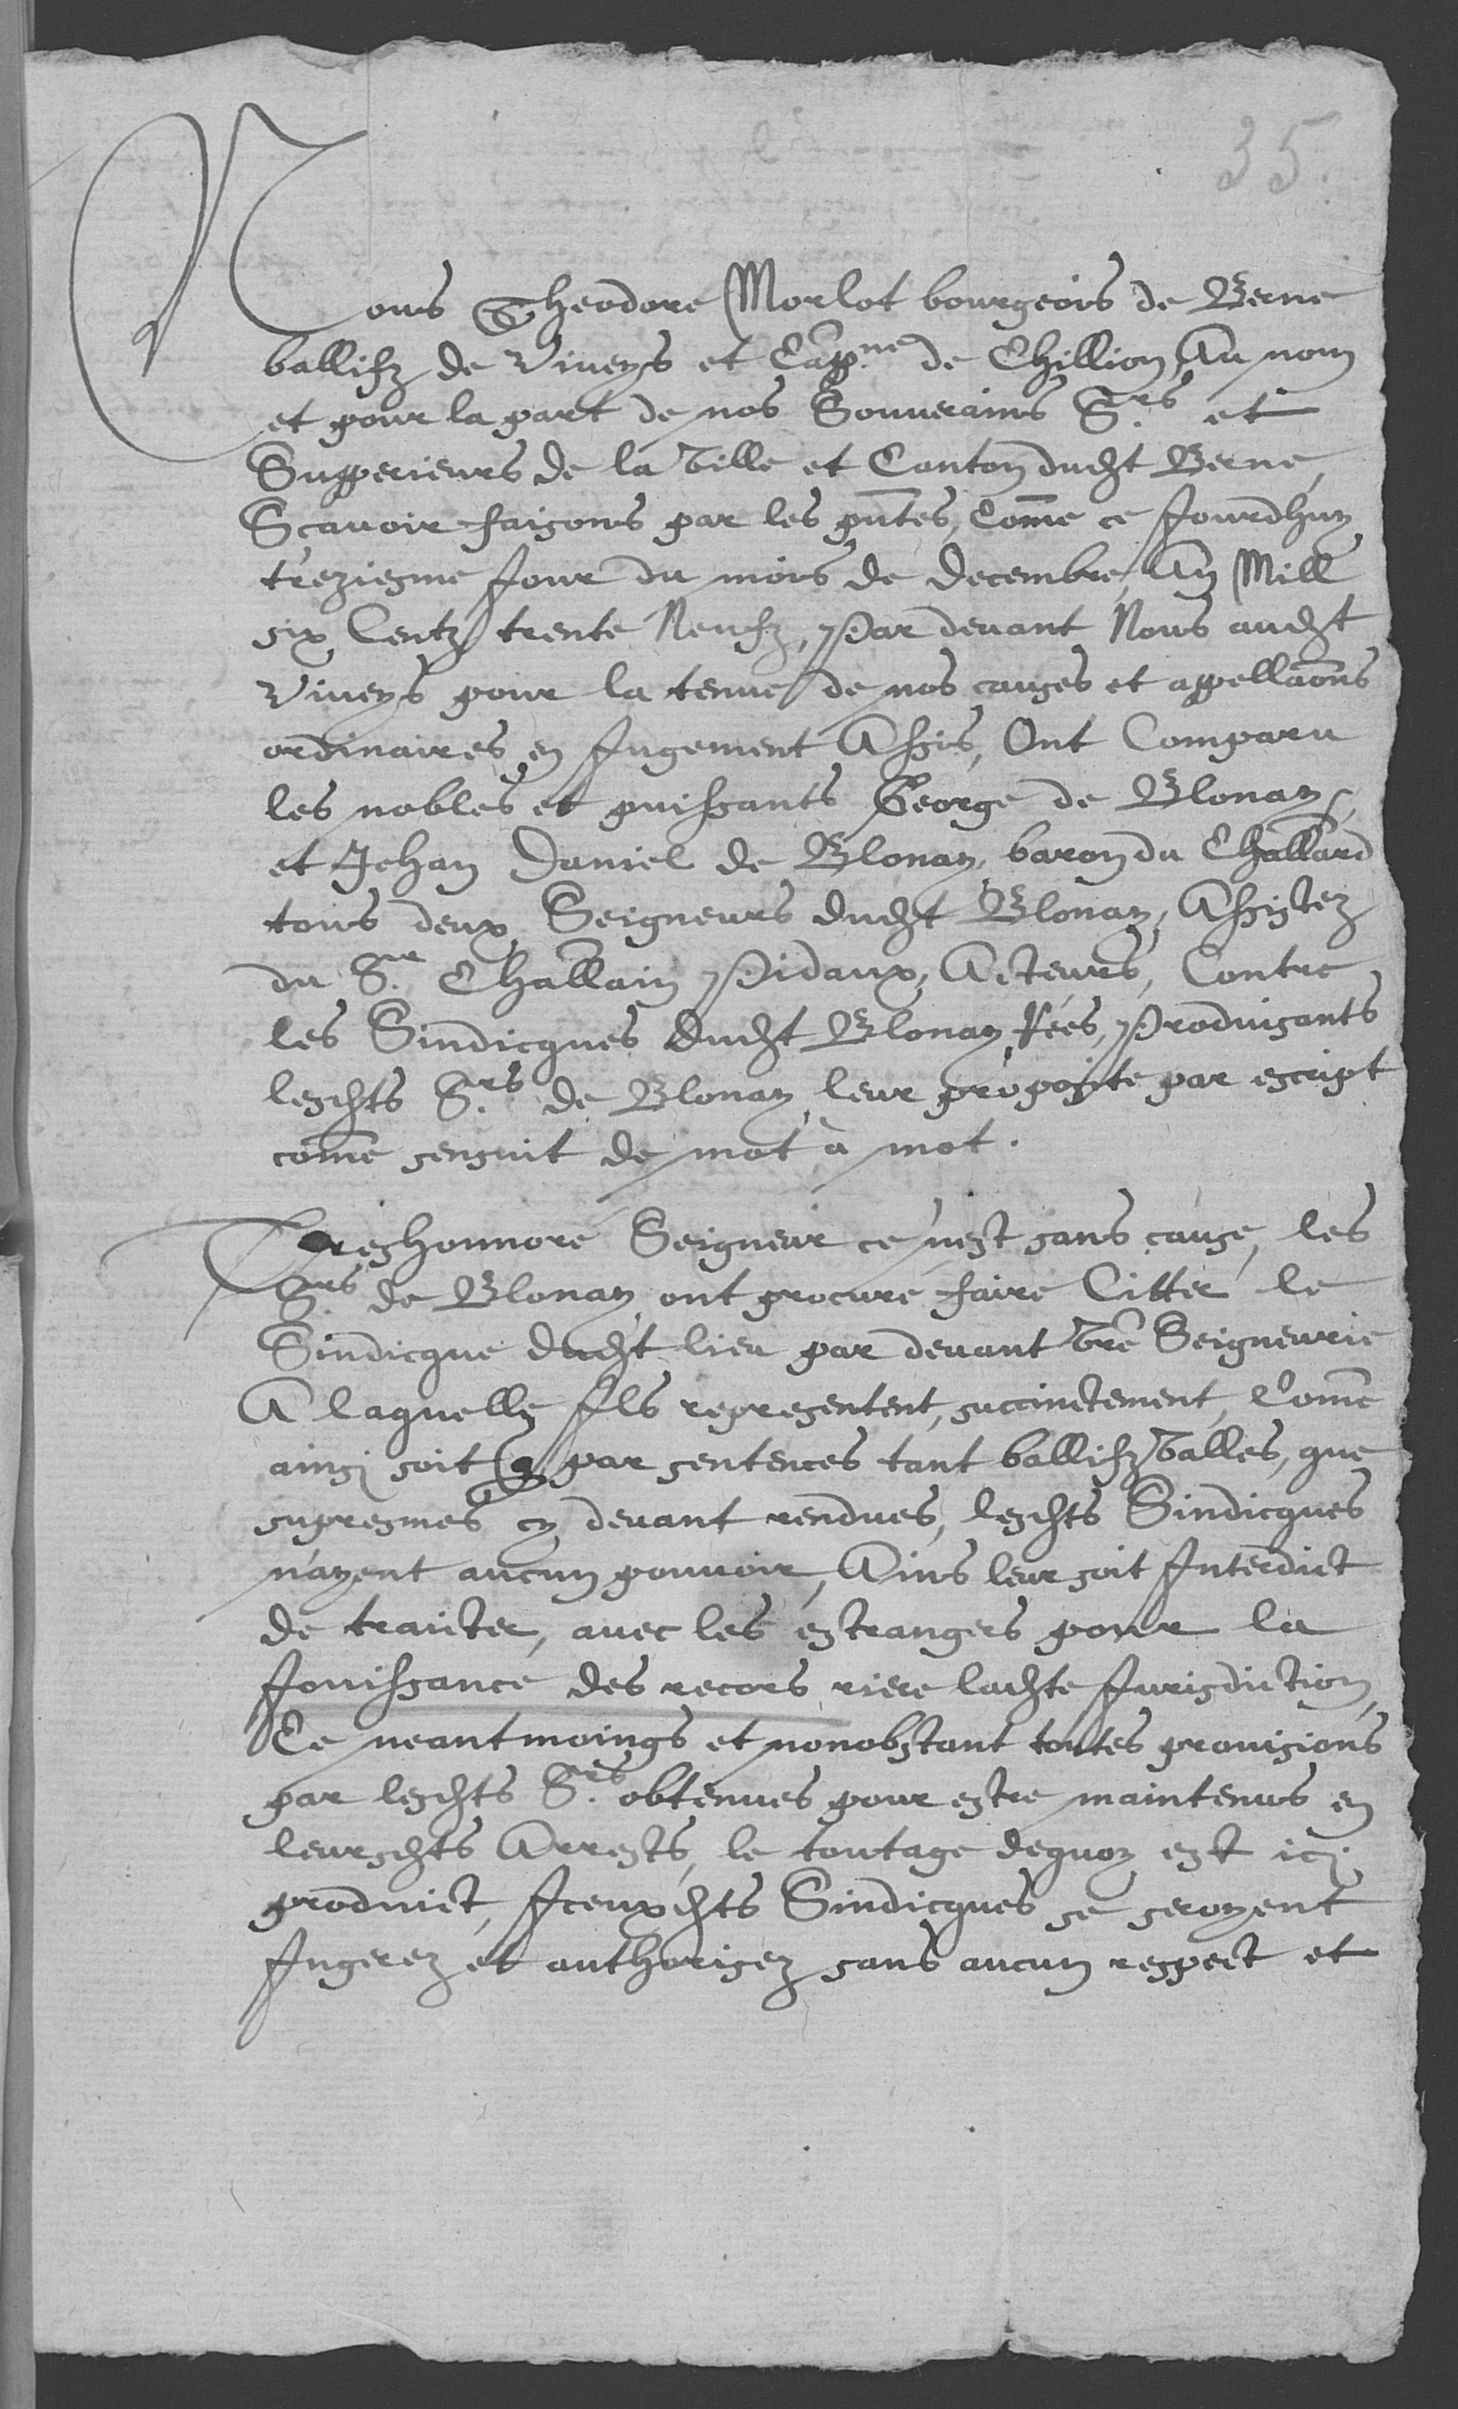 35.
Nous Theodore Morlot bourgeois de Berne
ballifz de Viveys et Capne de Chillion, Au nom
et pour la part de nos Souverains Srs et
Supperieurs de la Ville et Canton dudt Berne,
Scavoir faisons par les pntes, Come ce Jourdhuy
treziesme Jour du mois de Decembre, An Mill
six Centz trente Neufz, Par devant Nous audt
Viveys pour la tenue de nos causes et appellaons
ordinaires en Jugement Assis, Ont Comparu
les nobles et puissants George de Blonay,
et Jehan Daniel de Blonay, baron du Challard
tous deux Seigneurs dudt Blonay, Assistez
du Sr Challain Pidaux, Acteurs, Contre
les Sindicques dudt Blonay Rées, Produisants
lesdts Srs de Blonay leur proposite par escript
come sensuit de mot à mot.
Treshonnoré Seigneur ce nest sans cause, les
Srs de Blonay ont procuré faire Citter le
Sindicque dudt lieu par devant vre Seigneurie
A laquelle Ils representent, succinctement, Come
ainsi soit q par sentences tant ballifzvalles, que
supresmes cy devant rendues, lesdts Sindicques
n'ayent aucun pouvoir, Ains leur soit Interdict
de traicter, avec les estrangers pour la
Jouissance des recors riere ladte Jurisdiction,
Ce neantmoings et nonobstant toutes provisions
par lesdts Srs obtenues pour estre maintenus en
leursdts Arrests, le toutage dequoy est icj
produict, Iceuxdts Sindicques se seroyent
Ingerez et authorisez sans aucun respect et